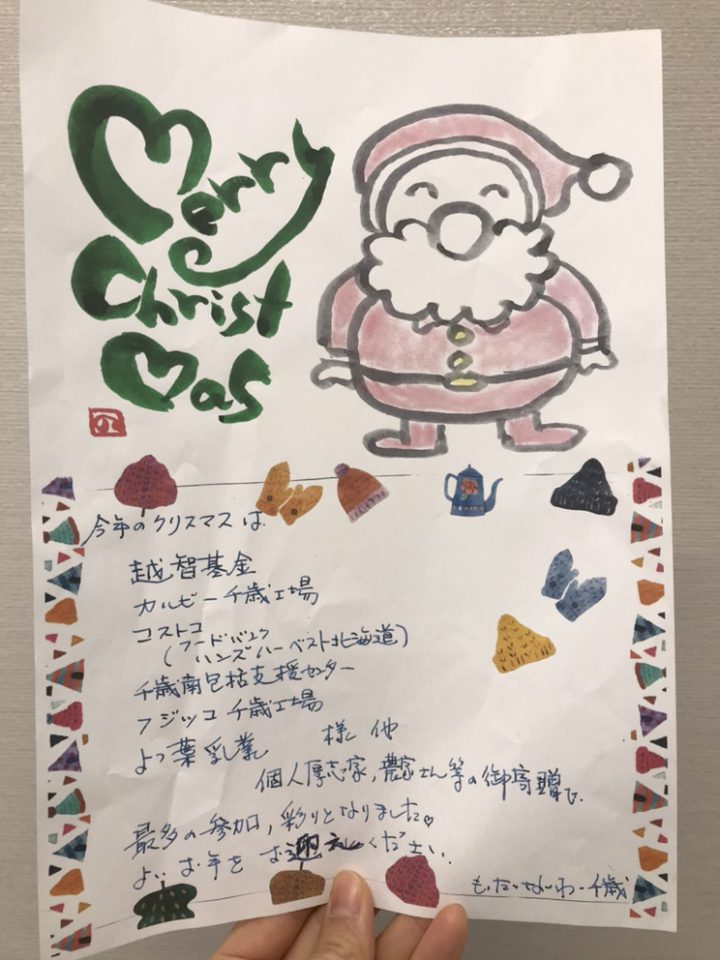 Merry
Christ
mas
今年のクリスマスは
越智基金
カルビー千歳工場
コストコ
(フードバンク
ハンズハーベスト北海道)
千歳南包括支援センター
フジッコ千歳工場
よつ葉乳業 様 他
個人厚志家,農家さん等の御寄贈で、
最多の参加,彩りとなりました♡
よいお年をお迎えください.
もったいないわ・千歳